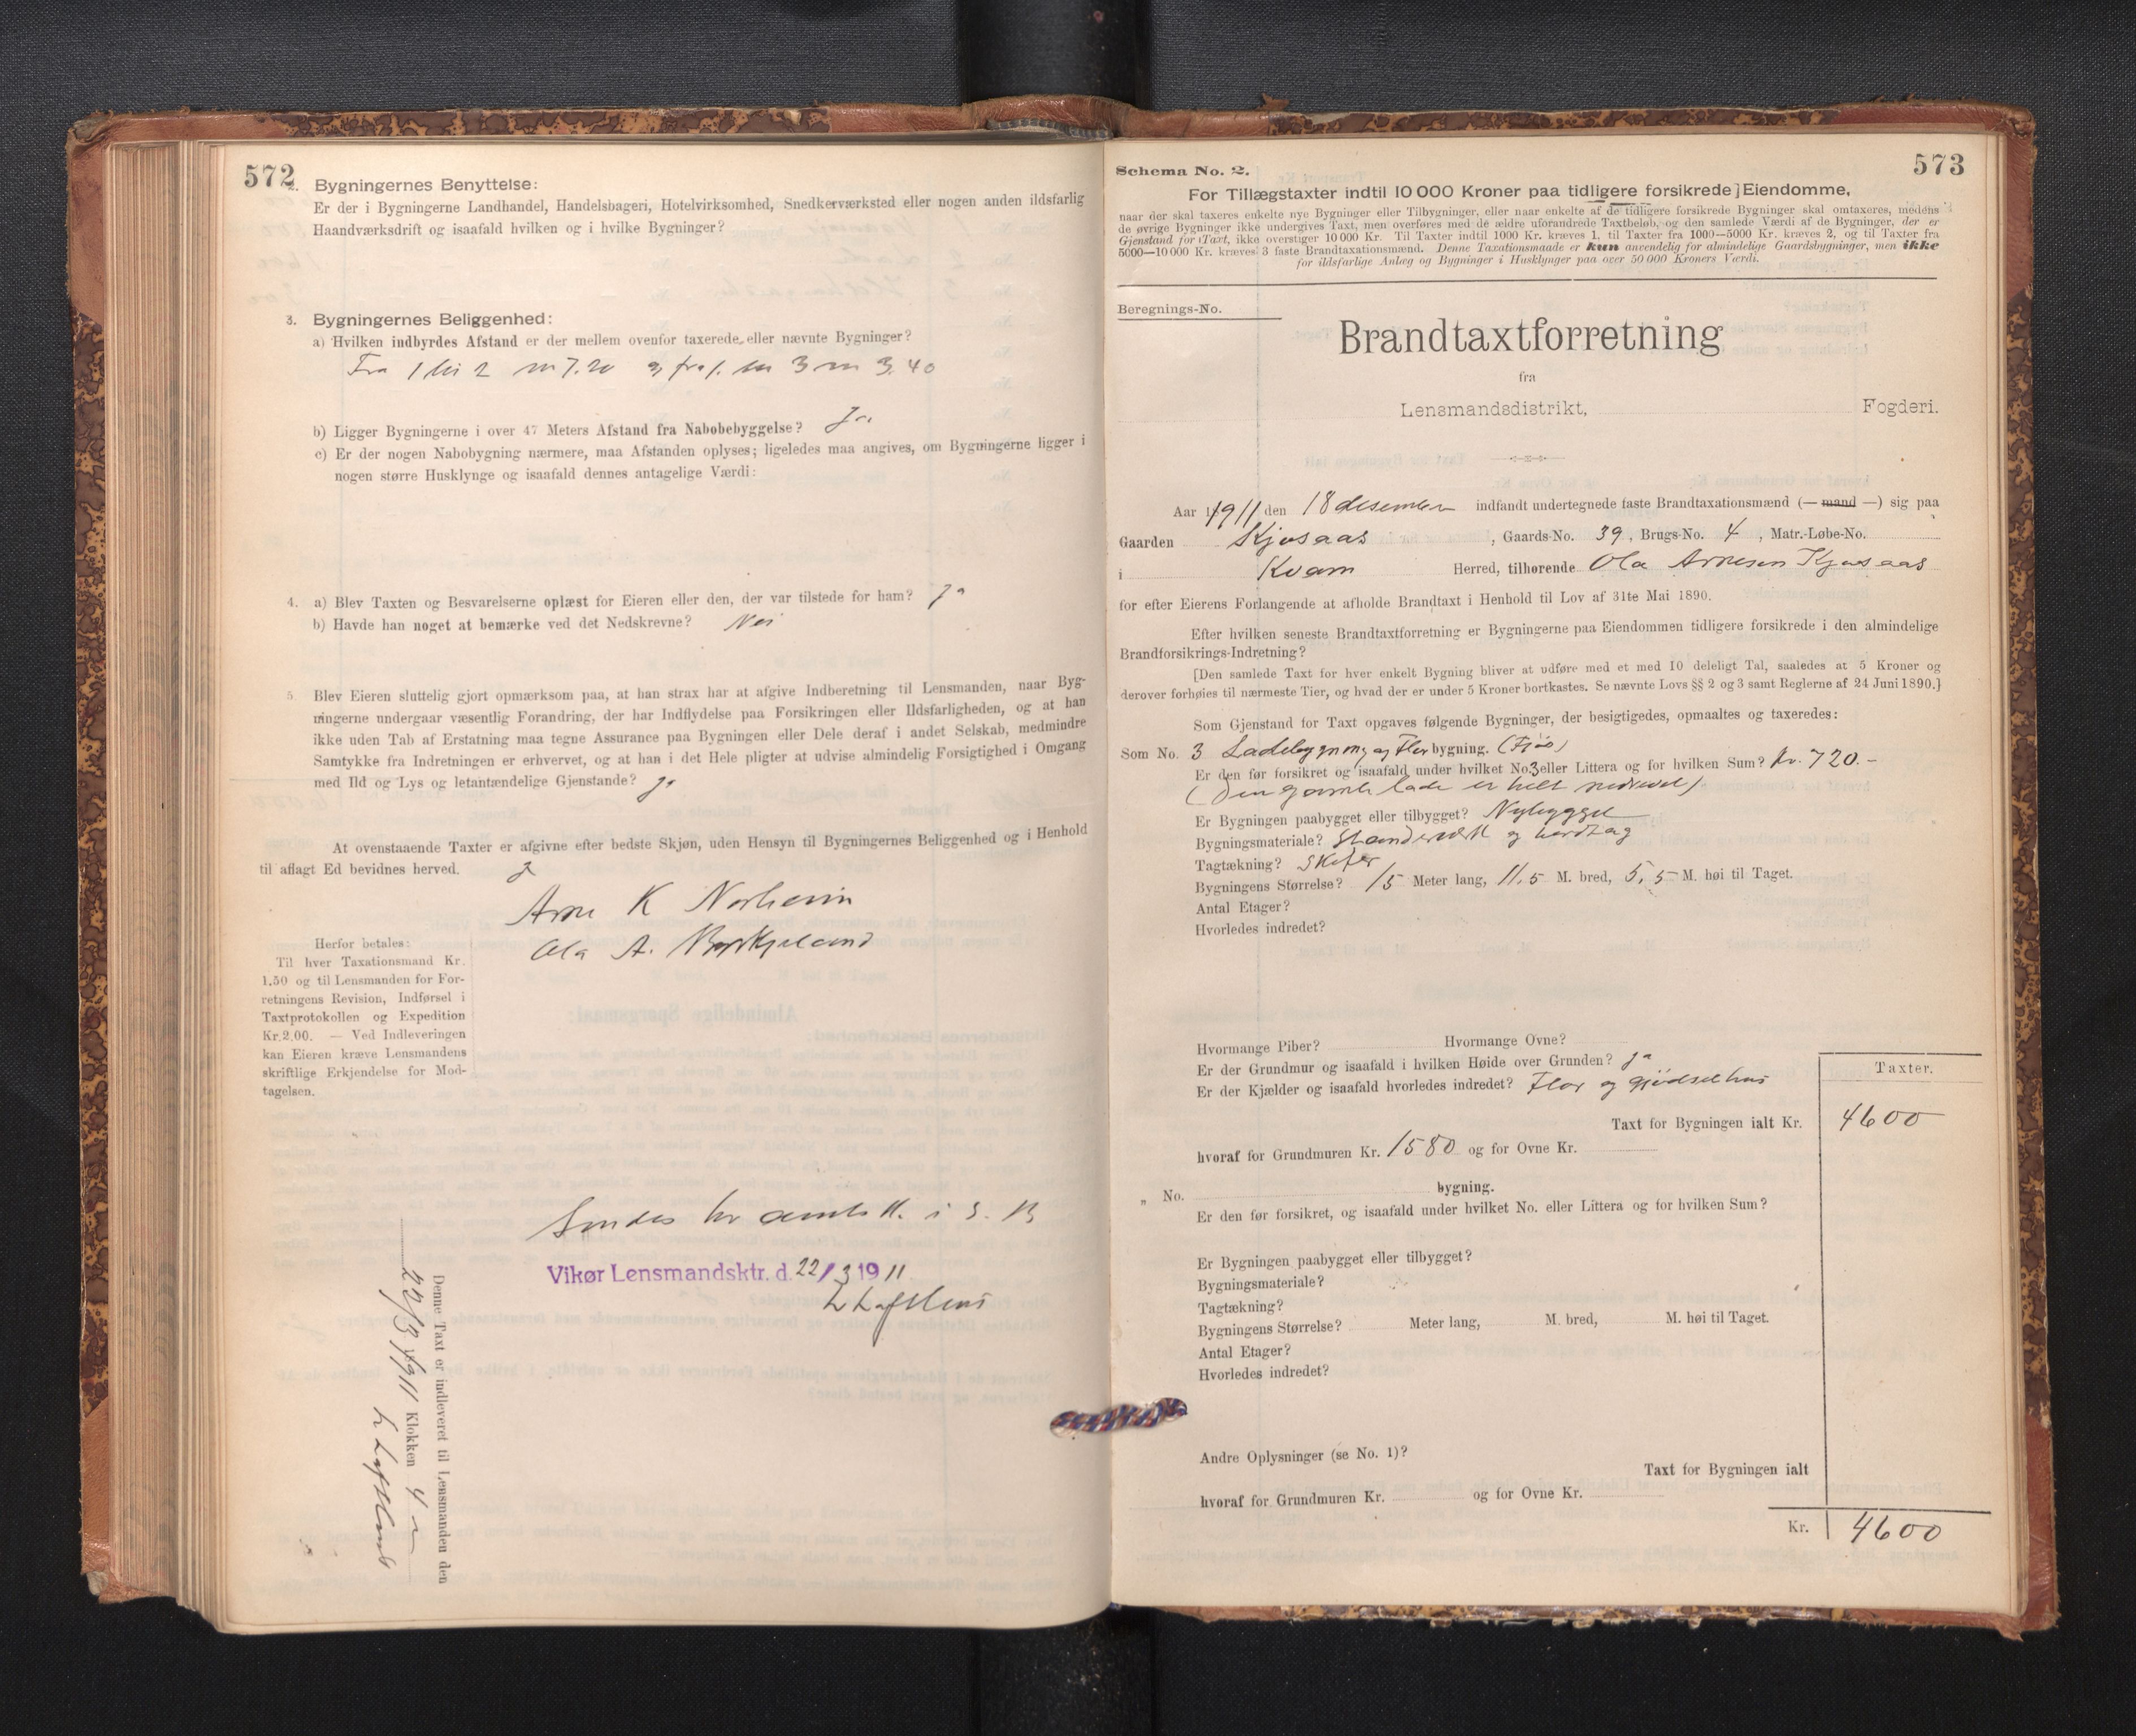 572
2. Bygningernes Benyttelse:
Er der i Bygningerne Landhandel, Handelsbageri, Hotelvirksomhed, Snedkerværksted eller nogen anden ildsfarlig
Haandværksdrift og isaafald hvilken og i hvilke Bygninger?
3. Bygningernes Beliggenhed:
a) Hvilken indbyrdes Afstand er der mellem ovenfor taxerede eller nævnte Bygninger?
Fra 1 til 2 m 7.20 og fra 1 til 3 m 3.40
b) Ligger Bygningerne i over 47 Meters Afstand fra Nabobebyggelse? Ja
c) Er der nogen Nabobygning nærmere, maa Afstanden oplyses; ligeledes maa angives, om Bygningerne ligger i
nogen større Husklynge og isaafald dennes antagelige Værdi:
4. a) Blev Taxten og Besvarelserne oplæst for Eieren eller den, der var tilstede for ham? Ja
b) Havde han noget at bemærke ved det Nedskrevne? Nei
5. Blev Eieren sluttelig gjort opmærksom paa, at han strax har at afgive Indberetning til Lensmanden, naar Byg-
ningerne undergaar væsentlig Forandring, der har Indflydelse paa Forsikringen eller Ildsfarligheden, og at han
ikke uden Tab af Erstatning maa tegne Assurance paa Bygningen eller Dele deraf i andet Selskab, medmindre
Samtykke fra Indretningen er erhvervet, og at han i det Hele pligter at udvise almindelig Forsigtighed i Omgang
med Ild og Lys og letantændelige Gjenstande? Ja
At ovenstaaende Taxter er afgivne efter bedste Skjøn, uden Hensyn til Bygningernes Beliggenhed og i Henhold
til aflagt Ed bevidnes herved.
Arne K Norheim
Ola A.
Herfor betales:
Til hver Taxationsmand Kr.
1,50 og til Lensmanden for For-
retningens Revision, Indførsel i
Taxtprotokollen og Expedition
Kr. 2,00. — Ved Indleveringen
kan Eieren kræve Lensmandens
skriftlige Erkjendelse for Mod-
tagelsen.
Sendes hr amtsk. i S. B
Vikør Lensmandsktr. d. 22/3 1911
Denne Taxt er indleveret til Lensmanden den
22/3 1911 Klokken 4
573
Schema No. 2.
For Tillægstaxter indtil 10 000 Kroner paa tidligere forsikrede Eiendomme,
naar der skal taxeres enkelte nye Bygninger eller Tilbygninger, eller naar enkelte af de tidligere forsikrede Bygninger skal omtaxeres, medens
de øvrige Bygninger ikke undergives Taxt, men overføres med de ældre uforandrede Taxtbeløb, og den samlede Værdi af de Bygninger, der er
Gjenstand for Taxt, ikke overstiger 10 000 Kr. Til Taxter indtil 1000 Kr. kræves 1, til Taxter fra 1000—5000 Kr. kræves 2, og til Taxter fra
5000—10 000 Kr. kræves 3 faste Brandtaxationsmænd. Denne Taxationsmaade er kun anvendelig for almindelige Gaardsbygninger, men ikke
for ildsfarlige Anlæg og Bygninger i Husklynger paa over 50 000 Kroners Værdi.
Beregnings-No.
Brandtaxtforretning
fra
Lensmandsdistrikt, Fogderi.
Aar 1911 den 18 desember indfandt undertegnede faste Brandtaxationsmænd (— mand —) sig paa
Gaarden Kjosaas, Gaards-No. 39, Brugs-No. 4, Matr.-Løbe-No.
i Kvam Herred, tilhørende Ola Arnesen Kjosaas
for efter Eierens Forlangende at afholde Brandtaxt i Henhold til Lov af 31te Mai 1890.
Efter hvilken seneste Brandtaxtforretning er Bygningerne paa Eiendommen tidligere forsikrede i den almindelige
Brandforsikrings-Indretning?
[Den samlede Taxt for hver enkelt Bygning bliver at udføre med et med 10 deleligt Tal, saaledes at 5 Kroner og
derover forhøies til nærmeste Tier, og hvad der er under 5 Kroner bortkastes. Se nævnte Lovs §§ 2 og 3 samt Reglerne af 24 Juni 1890.]
Som Gjenstand for Taxt opgaves følgende Bygninger, der besigtigedes, opmaaltes og taxeredes:
Som No. 3 Ladebygning og Flor bygning. (Fjøs)
Er den før forsikret og isaafald under hvilket No. 3 eller Littera og for hvilken Sum? Kr. 720.–
(Den gamle lade er helt nedrevet)
Er Bygningen paabygget eller tilbygget? Nybygget
Bygningsmateriale? Standerverk og bordtag
Tagtækning? Skifer
Bygningens Størrelse? 15 Meter lang, 11.5 M. bred, 5,5 M. høi til Taget.
Antal Etager?
Hvorledes indredet?
Hvormange Piber? Hvormange Ovne?
Er der Grundmur og isaafald i hvilken Høide over Grunden? Ja
Er der Kjælder og isaafald hvorledes indredet? Flor og gjødselhus
Taxter.
Taxt for Bygningen ialt Kr. 4600
hvoraf for Grundmuren Kr. 1580 og for Ovne Kr.
„ No. bygning.
Er den før forsikret, og isaafald under hvilket No. eller Littera og for hvilken Sum?
Er Bygningen paabygget eller tilbygget?
Bygningsmateriale?
Tagtækning?
Bygningens Størrelse? Meter lang, M. bred, M. høi til Taget.
Antal Etager?
Hvorledes indredet?
Andre Oplysninger (se No. 1)?
Taxt for Bygningen ialt
hvoraf for Grundmuren Kr. og for Ovne Kr.
Kr. 4600